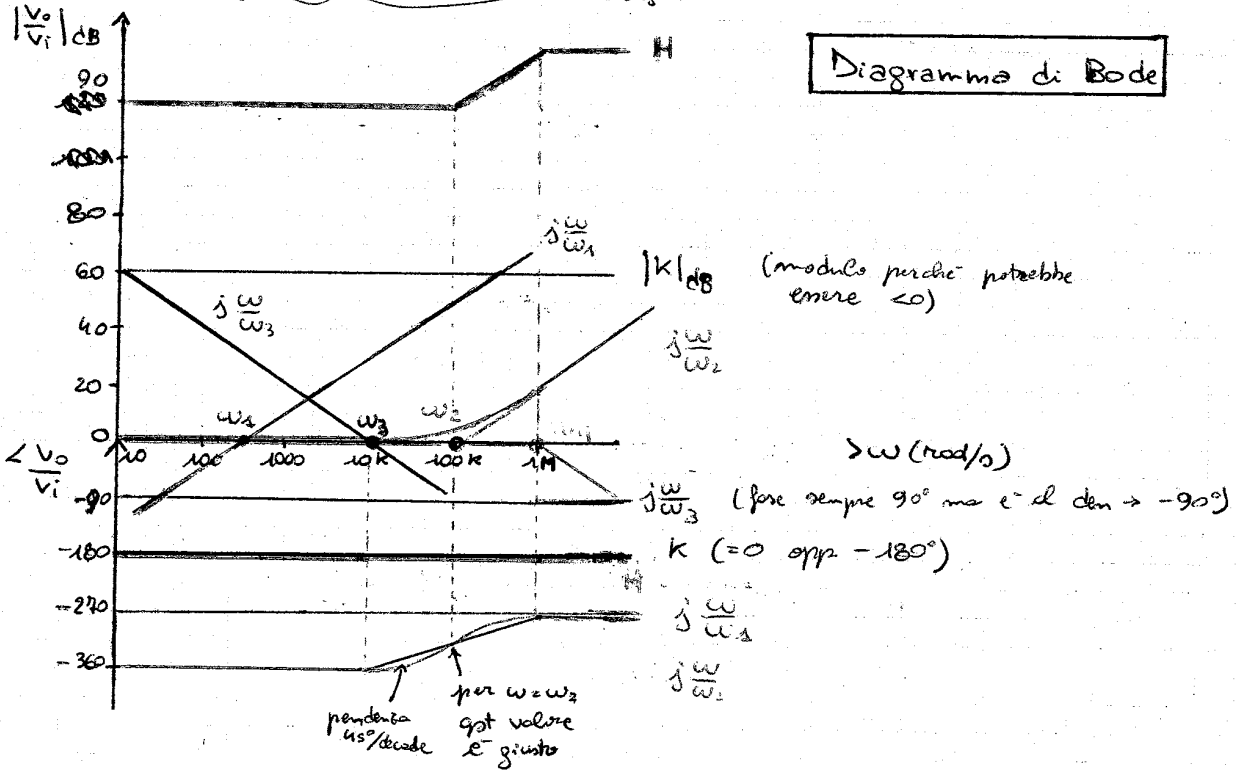 |Vo/Vi| dB
Diagramma di Bode
H
90
80
60
40
20
0
j ω/ω1
|K| dB (modulo perché potrebbe
essere <0)
j ω/ω3
j ω/ω2
ω1
ω3
ω2
10
100
1000
10K
100K
1M
>ω (rad/s)
∠ Vo/Vi
-90
j ω/ω3 (fase sempre 90° ma è al den → -90°)
-180
K (=0 opp -180°)
H
-270
j ω/ω1
-360
j ω/ω2
pendenza
45°/decade
per ω=ω2
qst valore
è giusto